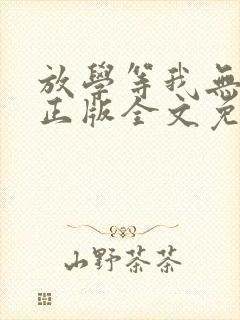 放學等我無
正版全文免
山野茶茶